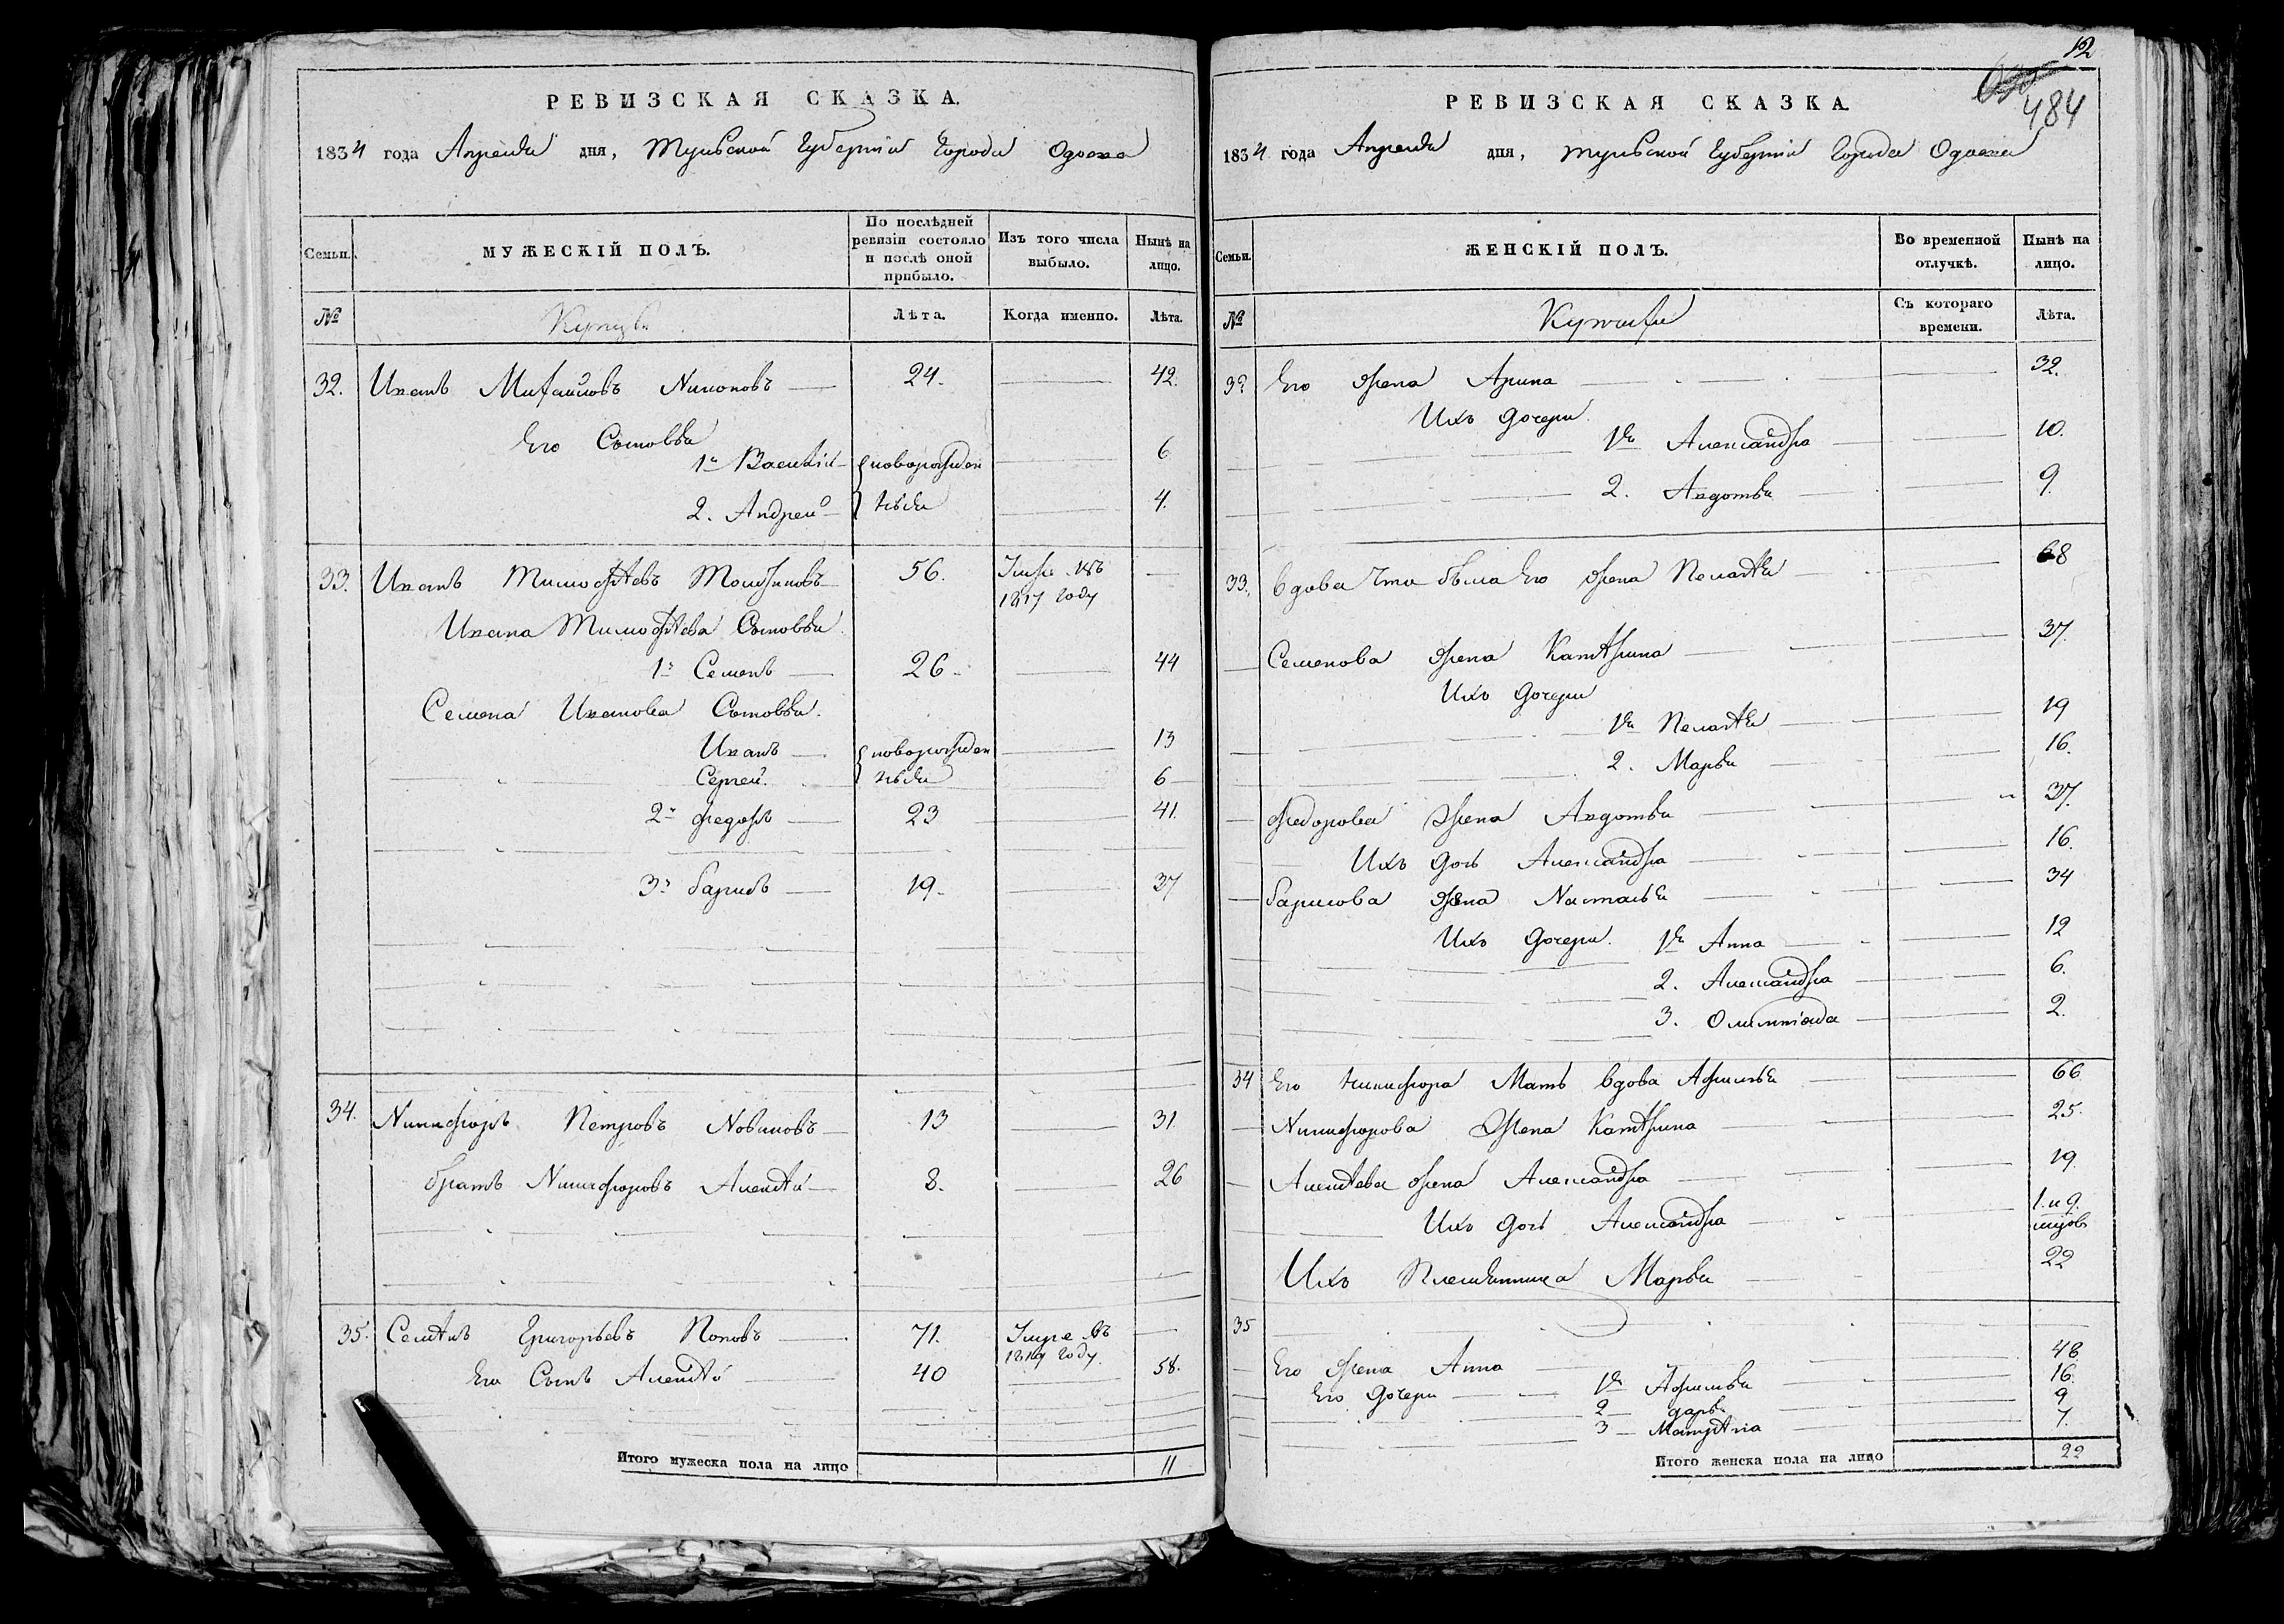 РЕВИЗСКАЯ СКАЗКА.
1834 года Апреля дня, Тульской Губернии Города Одоева
Семьи.
МУЖЕСКІЙ ПОЛЪ.
По послѣдней ревизіи состояло и послѣ оной прибыло.
Изъ того числа выбыло.
Нынѣ на лицо.
№
Купцы
Лѣта.
Когда именно.
Лѣта.
32. Иванъ Михайловъ Никоновъ 24. 42.
Его Сыновья
1й Василій новорожден 6
2. Андрей ныя 4.
33. Иванъ Тимофѣевъ 56. Умре въ
1817 году
Ивана Тимофѣева Сыновья
1й Семенъ 26 44
Семена Иванова Сыновья.
Иванъ новорожден 13
Сергей ныя 6
2й Федоръ 23 41.
3й Барисъ 19. 37
34. Никифоръ Петровъ Новиковъ 13 31.
братъ Никифоровъ Алексѣй 8. 26
35. Григорьевъ Поповъ 71. Умре въ
году.
Его Сынъ Алексѣй 40 58.
Итого мужеска пола на лицо 11
12
484
РЕВИЗСКАЯ СКАЗКА.
1834 года Апреля дня, Тульской Губернии Города Одоева
Семьи.
ЖЕНСКІЙ ПОЛЪ.
Во временной отлучкѣ.
Нынѣ на лицо.
№
Съ котораго времени.
Лѣта.
32 Его жена Арина 32.
Ихъ дочери
1я Александра 10.
2. Авдотья 9.
33. вдова что была Его жена Пелагѣя 68
Семенова жена Катѣрина 37.
Ихъ дочери
1я Пелагѣя 19
2. Марья 16.
Федорова жена Авдотья 37.
Ихъ дочь Александра 16.
Барисова жена Наталья 34
Ихъ дочери. 1я Анна 12
2. Александра 6.
3. Олимпіада 2.
34 Его Никифора Мать вдова Афимья 66
Никифорова жена Катѣрина 25.
Алексѣева жена Александра 19.
Ихъ дочь Александра 1. и 9.
Ихъ Племянница Марья 22
35
Его жена Анна 48
Его дочери 1я Афимья 16.
2 дарья 9
3 Матрѣна 7.
Итого женска пола на лицо 22